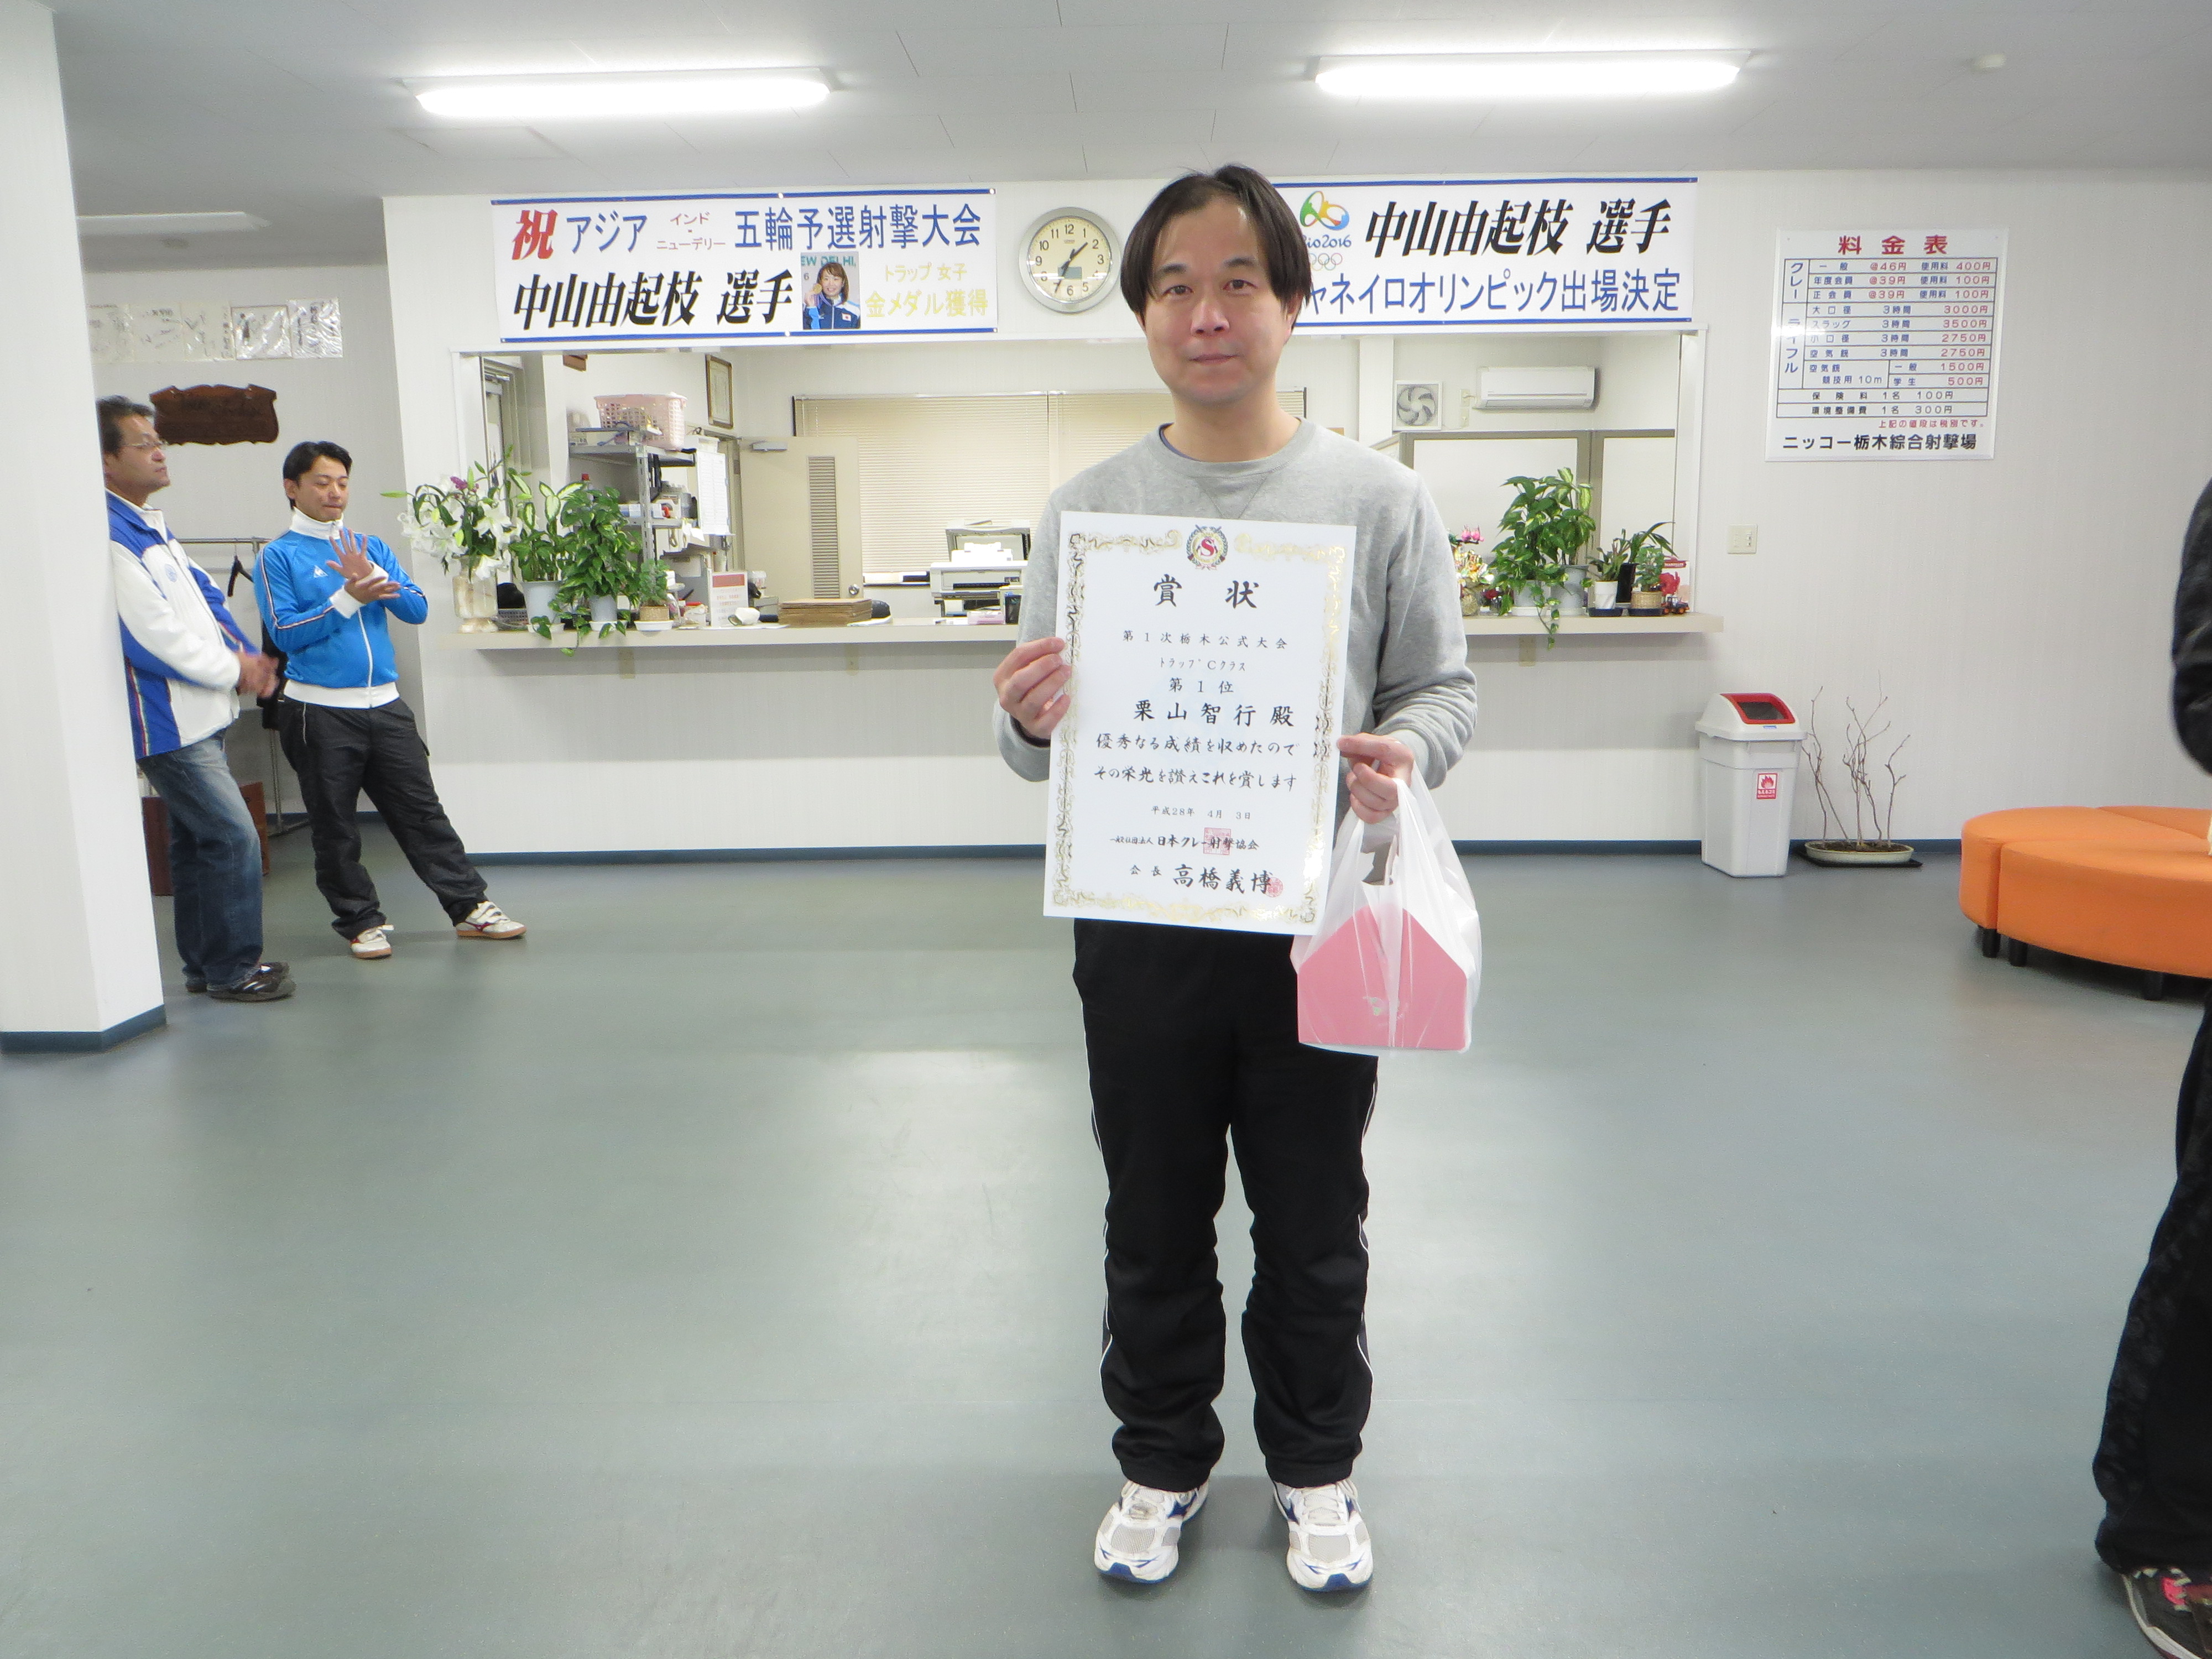 祝 アジア インド・ニューデリー 五輪予選射撃大会
中山由起枝 選手 トラップ 女子
金メダル獲得
NEW DELHI,
Rio2016
中山由起枝 選手
ャネイロオリンピック出場決定
12 1 2 3 5 6 8 9 10 11
料金表
クレー
一般 @46円 使用料 400円
年度会員 @39円 使用料 100円
正会員 @39円 使用料 100円
ライフル
大口径 3時間 3000円
スラッグ 3時間 3500円
小口径 3時間 2750円
空気銃 3時間 2750円
空気銃 競技用 10m 一般 1500円
学生 500円
保険料 1名 100円
環境整備費 1名 300円
上記の値段は税別です。
ニッコー栃木綜合射撃場
S
賞状
第1次栃木公式大会
トラップ Cクラス
第1位
栗山智行殿
優秀なる成績を収めたので
その栄光を讃えこれを賞します
平成28年 4月 3日
一般社団法人 日本クレー射撃協会
会長 高橋義博